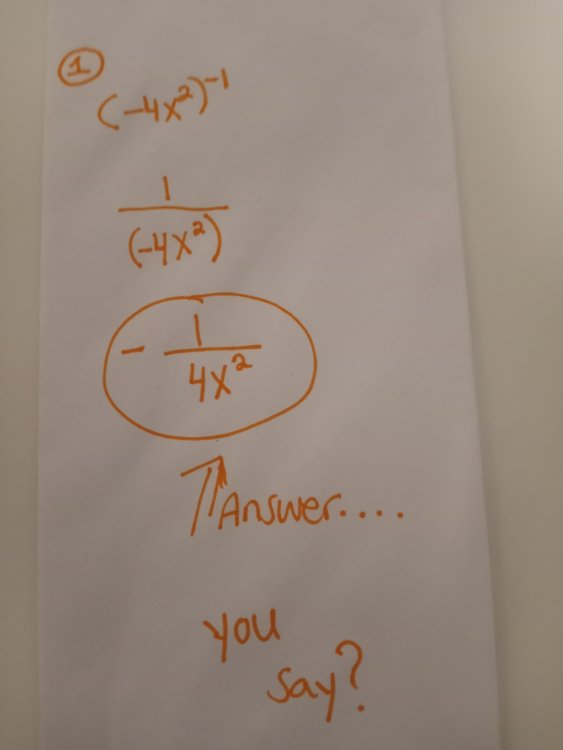 ①
(-4x²)⁻¹
1
(-4x²)
- 1
4x²
Answer....
you
say?